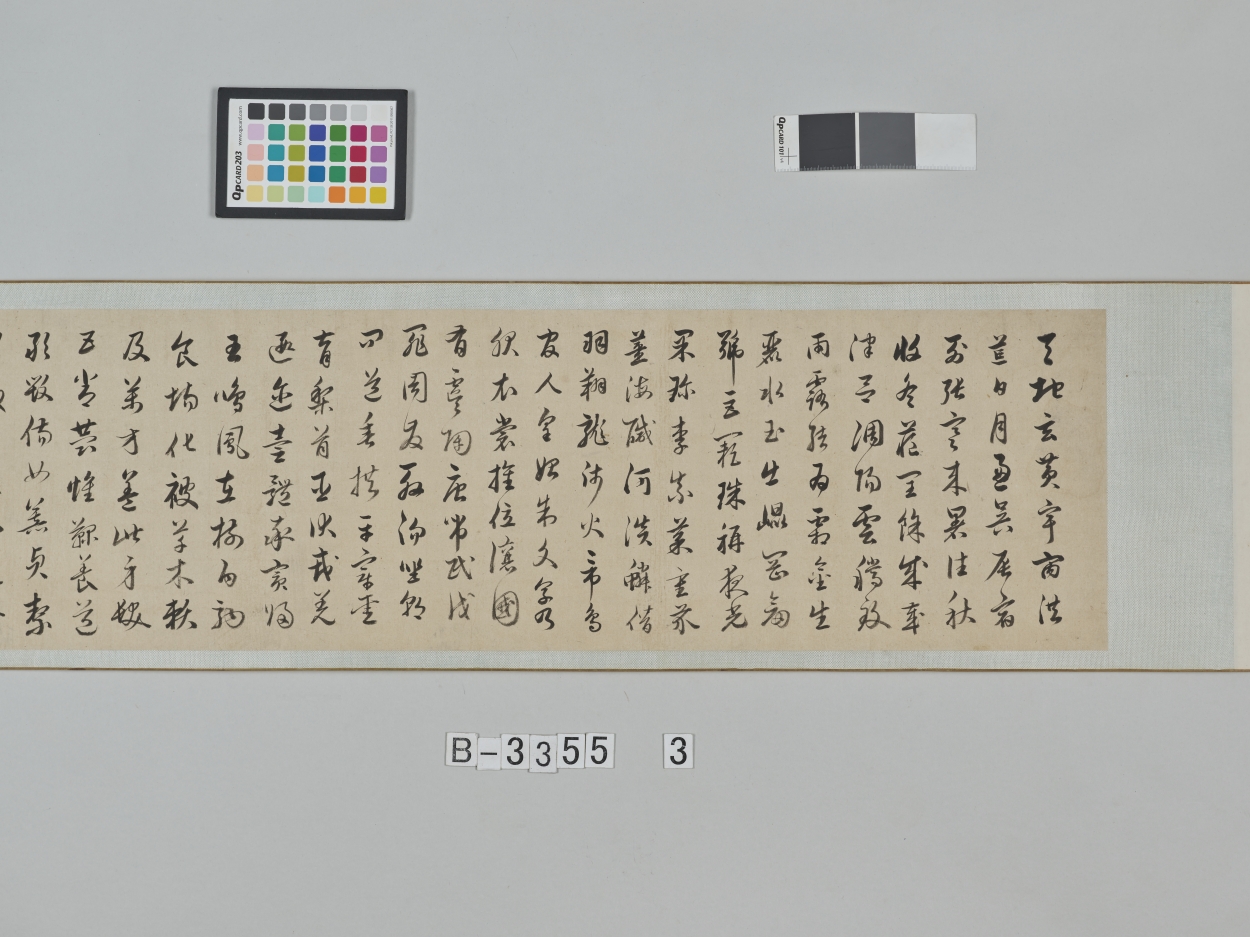 www.qpcard.com
QpCARD 203
QpCARD 101
天地玄黄宇宙洪
荒日月盈昃辰宿
列張寒来暑往秋
收冬蔵閏餘成歳
律呂調陽雲騰致
雨露結為霜金生
麗水玉出崐岡劔
號巨闕珠稱夜光
菓珍李柰菜重芥
薑海鹹河淡鱗潛
羽翔龍師火帝鳥
官人皇始制文字乃
服衣裳推位讓國
有虞陶唐弔民伐
罪周發殷湯坐朝
問道垂拱平章愛
育黎首臣伏戎羌
遐迩壹體率賓歸
王鳴鳳在樹白駒
食場化被草木賴
及萬方蓋此身髮
五常恭惟鞠養豈
敢毀傷女慕貞絜
B-3355 3